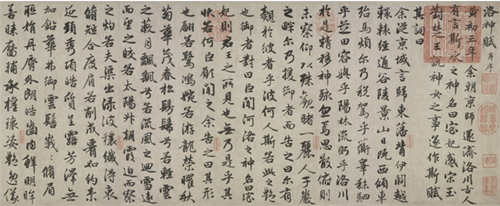 洛神賦 并序
黃初三年余朝京師還濟洛川古人
有言斯水之神名曰宓妃感宋玉
對楚王說神女之事遂作斯賦
其詞曰
余從京域言歸東藩背伊闕越
轘轅經通谷陵景山日既西傾車
殆馬煩爾乃稅駕乎蘅皋秣駟
乎芝田容與乎陽林流眄乎洛川
於是精移神駭忽焉思散俯則
未察仰以殊觀睹一麗人于巖
之畔爾乃援御者而告之曰爾有
覿於彼者乎彼何人斯若此之艷
也御者對曰臣聞河洛之神名曰宓
妃則君王之所見也無乃是乎其
狀若何臣願聞之余告之曰其形
也翩若驚鴻婉若游龍榮曜秋
菊華茂春松髣髴兮若輕雲
之蔽月飄颻兮若流風之迴雪遠
而望之皎若太陽升朝霞迫而察
之灼若芙蕖出淥波穠纖得衷
脩短合度肩若削成腰如約素
延頸秀項皓質呈露芳澤無
加鉛華弗御雲髻峩峩脩眉
聯娟丹脣外朗皓齒內鮮明眸
善睞靨輔承權瓌姿艷逸儀